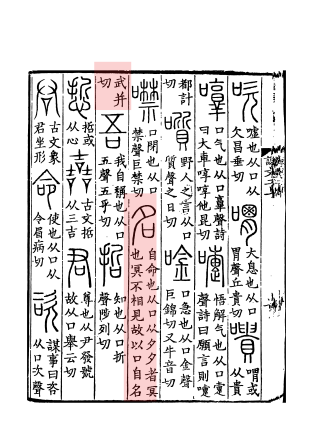 吹
噓也从口从
欠昌垂切
喟
大息也从口
胃聲丘貴切
嘳
喟或
从貴
啍
口气也从口𦎫聲詩
曰大車啍啍他昆切
嚏
悟解气也从口疐
聲詩曰願言則嚏
都計
切
㗧
野人之言从口
質聲之日切
唫
口急也从口金聲
巨錦切又牛音切
噤
口閉也从口
禁聲巨禁切
名
自命也从口从夕夕者冥
也冥不相見故以口自名
武并
切
吾
我自稱也从口
五聲五乎切
哲
知也从口折
聲陟列切
悊
哲或
从心
嚞
古文哲
从三吉
君
尊也从尹發號
故从口舉云切
古文象
君坐形
命
使也从口从
令眉病切
咨
謀事曰咨
从口次聲